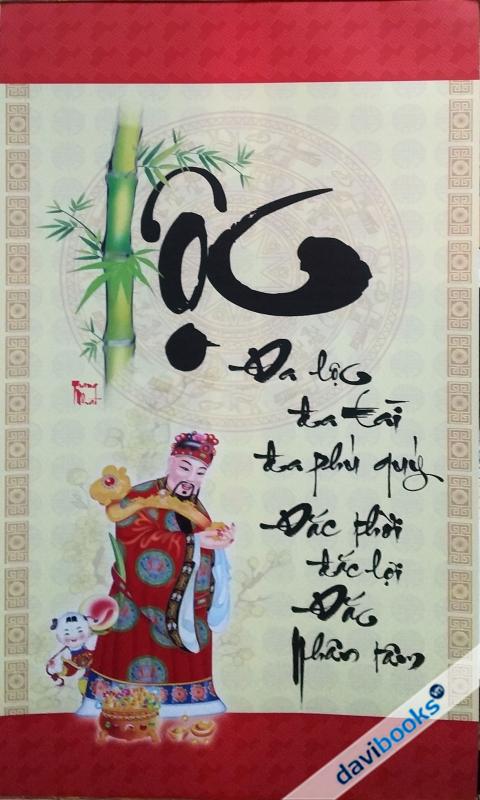 Lộc
Đa lộc
đa tài
đa phú quý
Đắc thời
đắc lợi
Đắc
nhân tâm
davibooks.vn